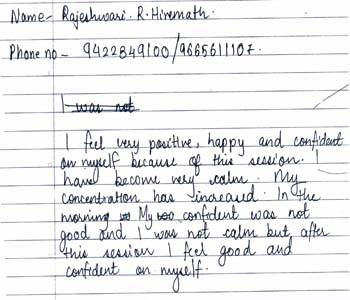 Name- Rajeshwari. R. Hiremath.
Phone no - 9422849100/9665611107.
I was not
I feel very positive, happy and confident
on myself because of this session. I
have become very calm. My
concentration has increased. In the
morning My confident was not
good and I was not calm but after
this session I feel good and
confident on myself.